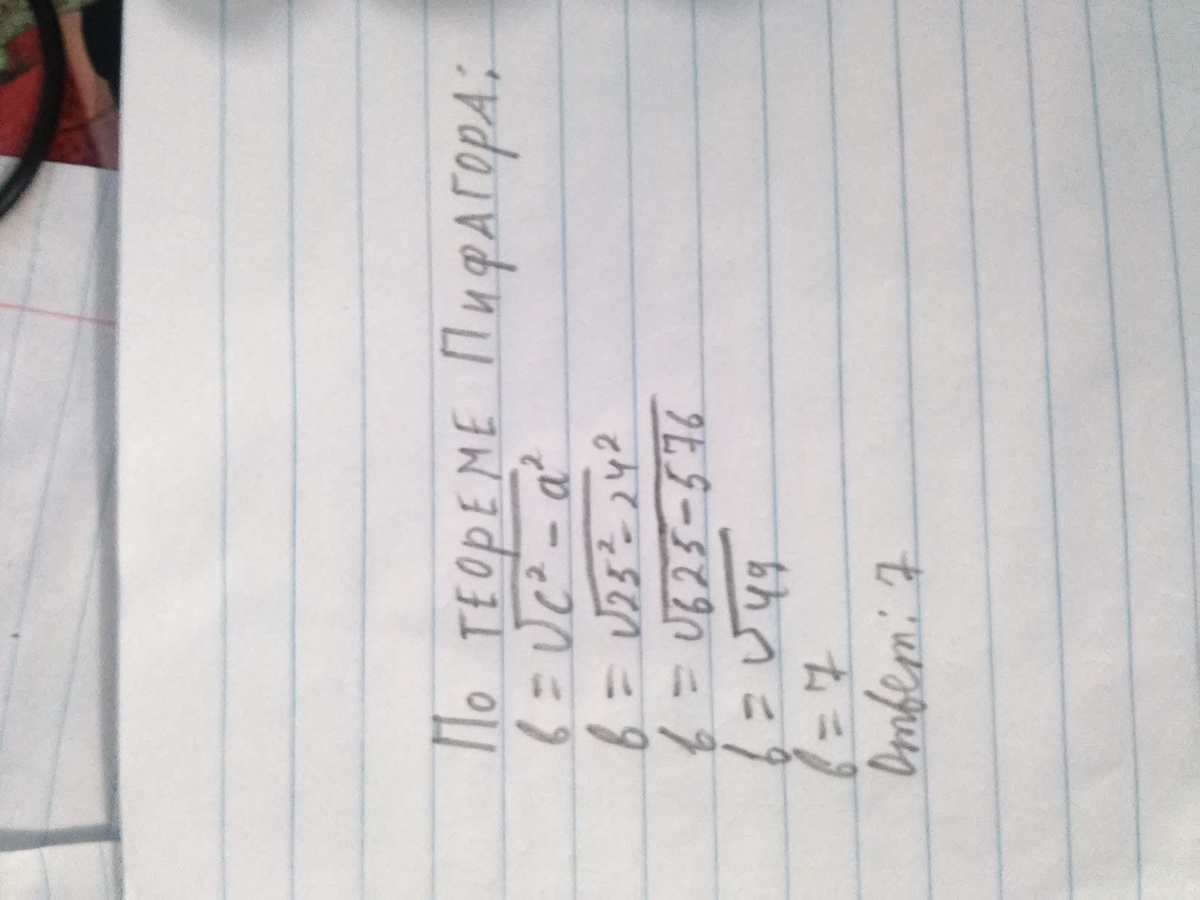 По ТЕОРЕМЕ ПИФАГОРА:
в = √c² - a²
в = √25² - 24²
в = √625 - 576
в = √49
в = 7
Ответ: 7